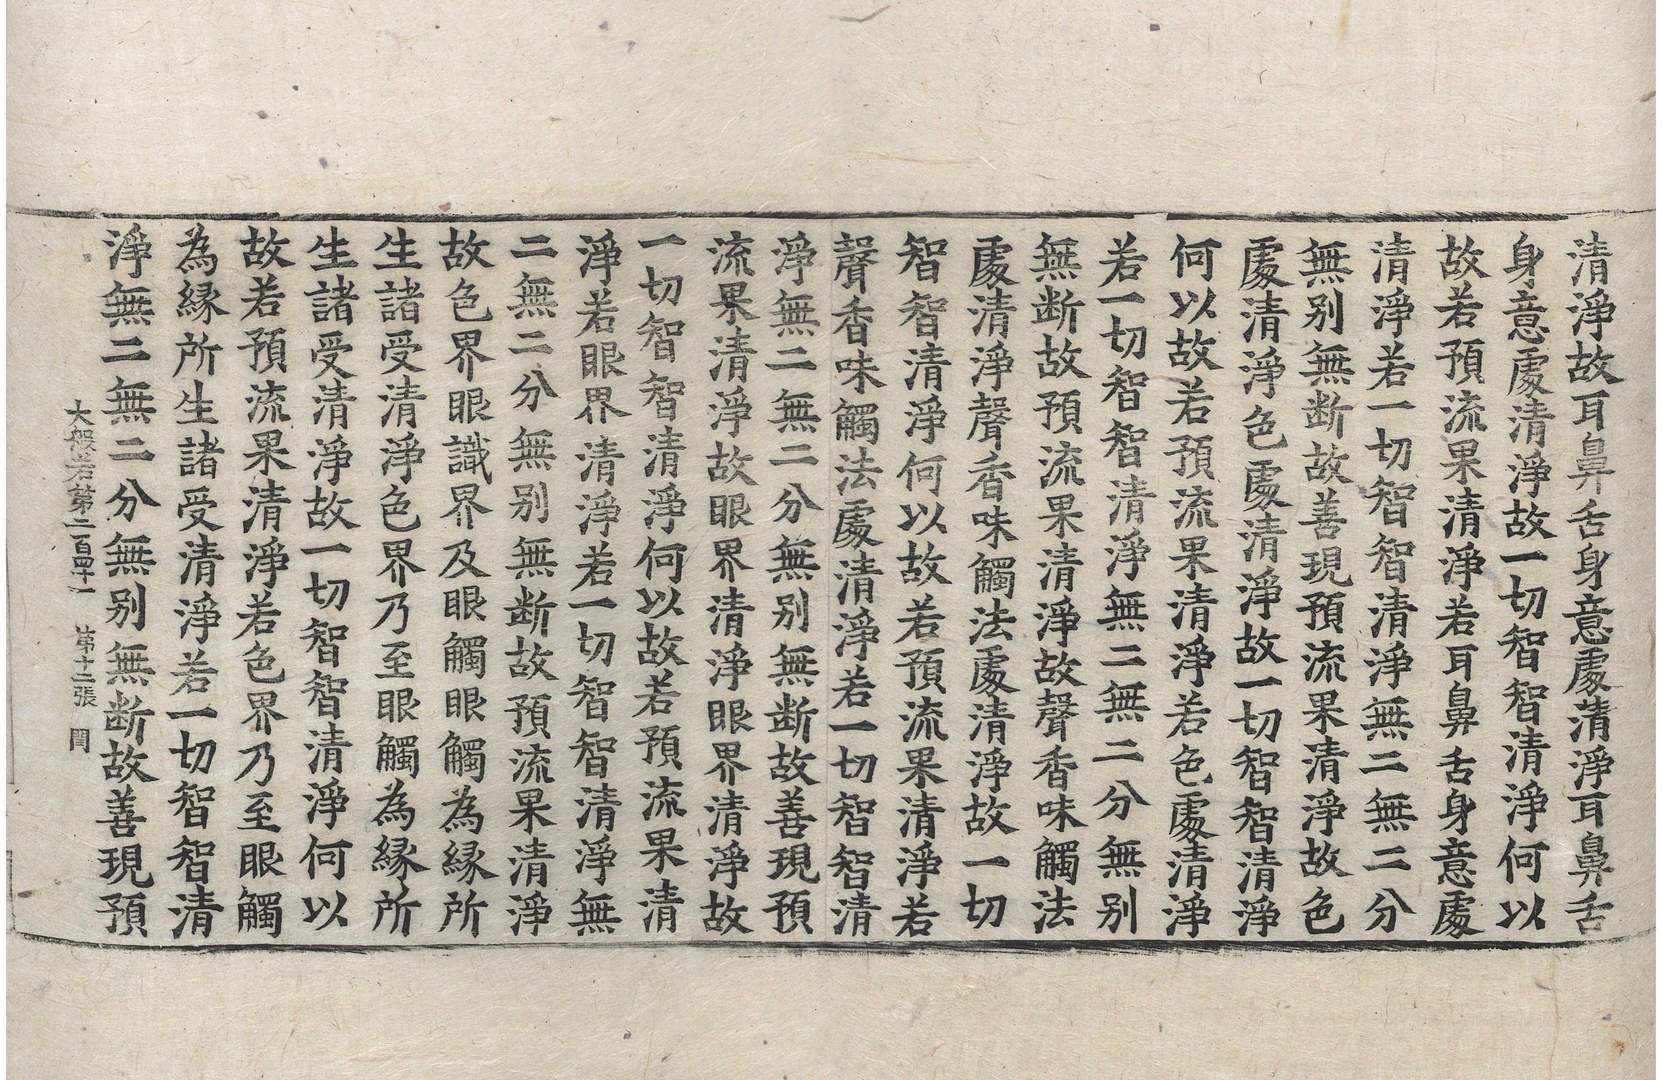 清淨故耳鼻舌身意處清淨耳鼻舌
身意處清淨故一切智智清淨何以
故若預流果清淨若耳鼻舌身意處
清淨若一切智智清淨無二無二分
無別無断故善現預流果清淨故色
處清淨色處清淨故一切智智清淨
何以故若預流果清淨若色處清淨
若一切智智清淨無二無二分無別
無断故預流果清淨故聲香味觸法
處清淨聲香味觸法處清淨故一切
智智清淨何以故若預流果清淨若
聲香味觸法處清淨若一切智智清
淨無二無二分無別無断故善現預
流果清淨故眼界清淨眼界清淨故
一切智智清淨何以故若預流果清
淨若眼界清淨若一切智智清淨無
二無二分無別無断故預流果清淨
故色界眼識界及眼觸眼觸為緣所
生諸受清淨色界乃至眼觸為緣所
生諸受清淨故一切智智清淨何以
故若預流果清淨若色界乃至眼觸
為緣所生諸受清淨若一切智智清
淨無二無二分無別無断故善現預
大般若第二百四十一 第十二張 閏